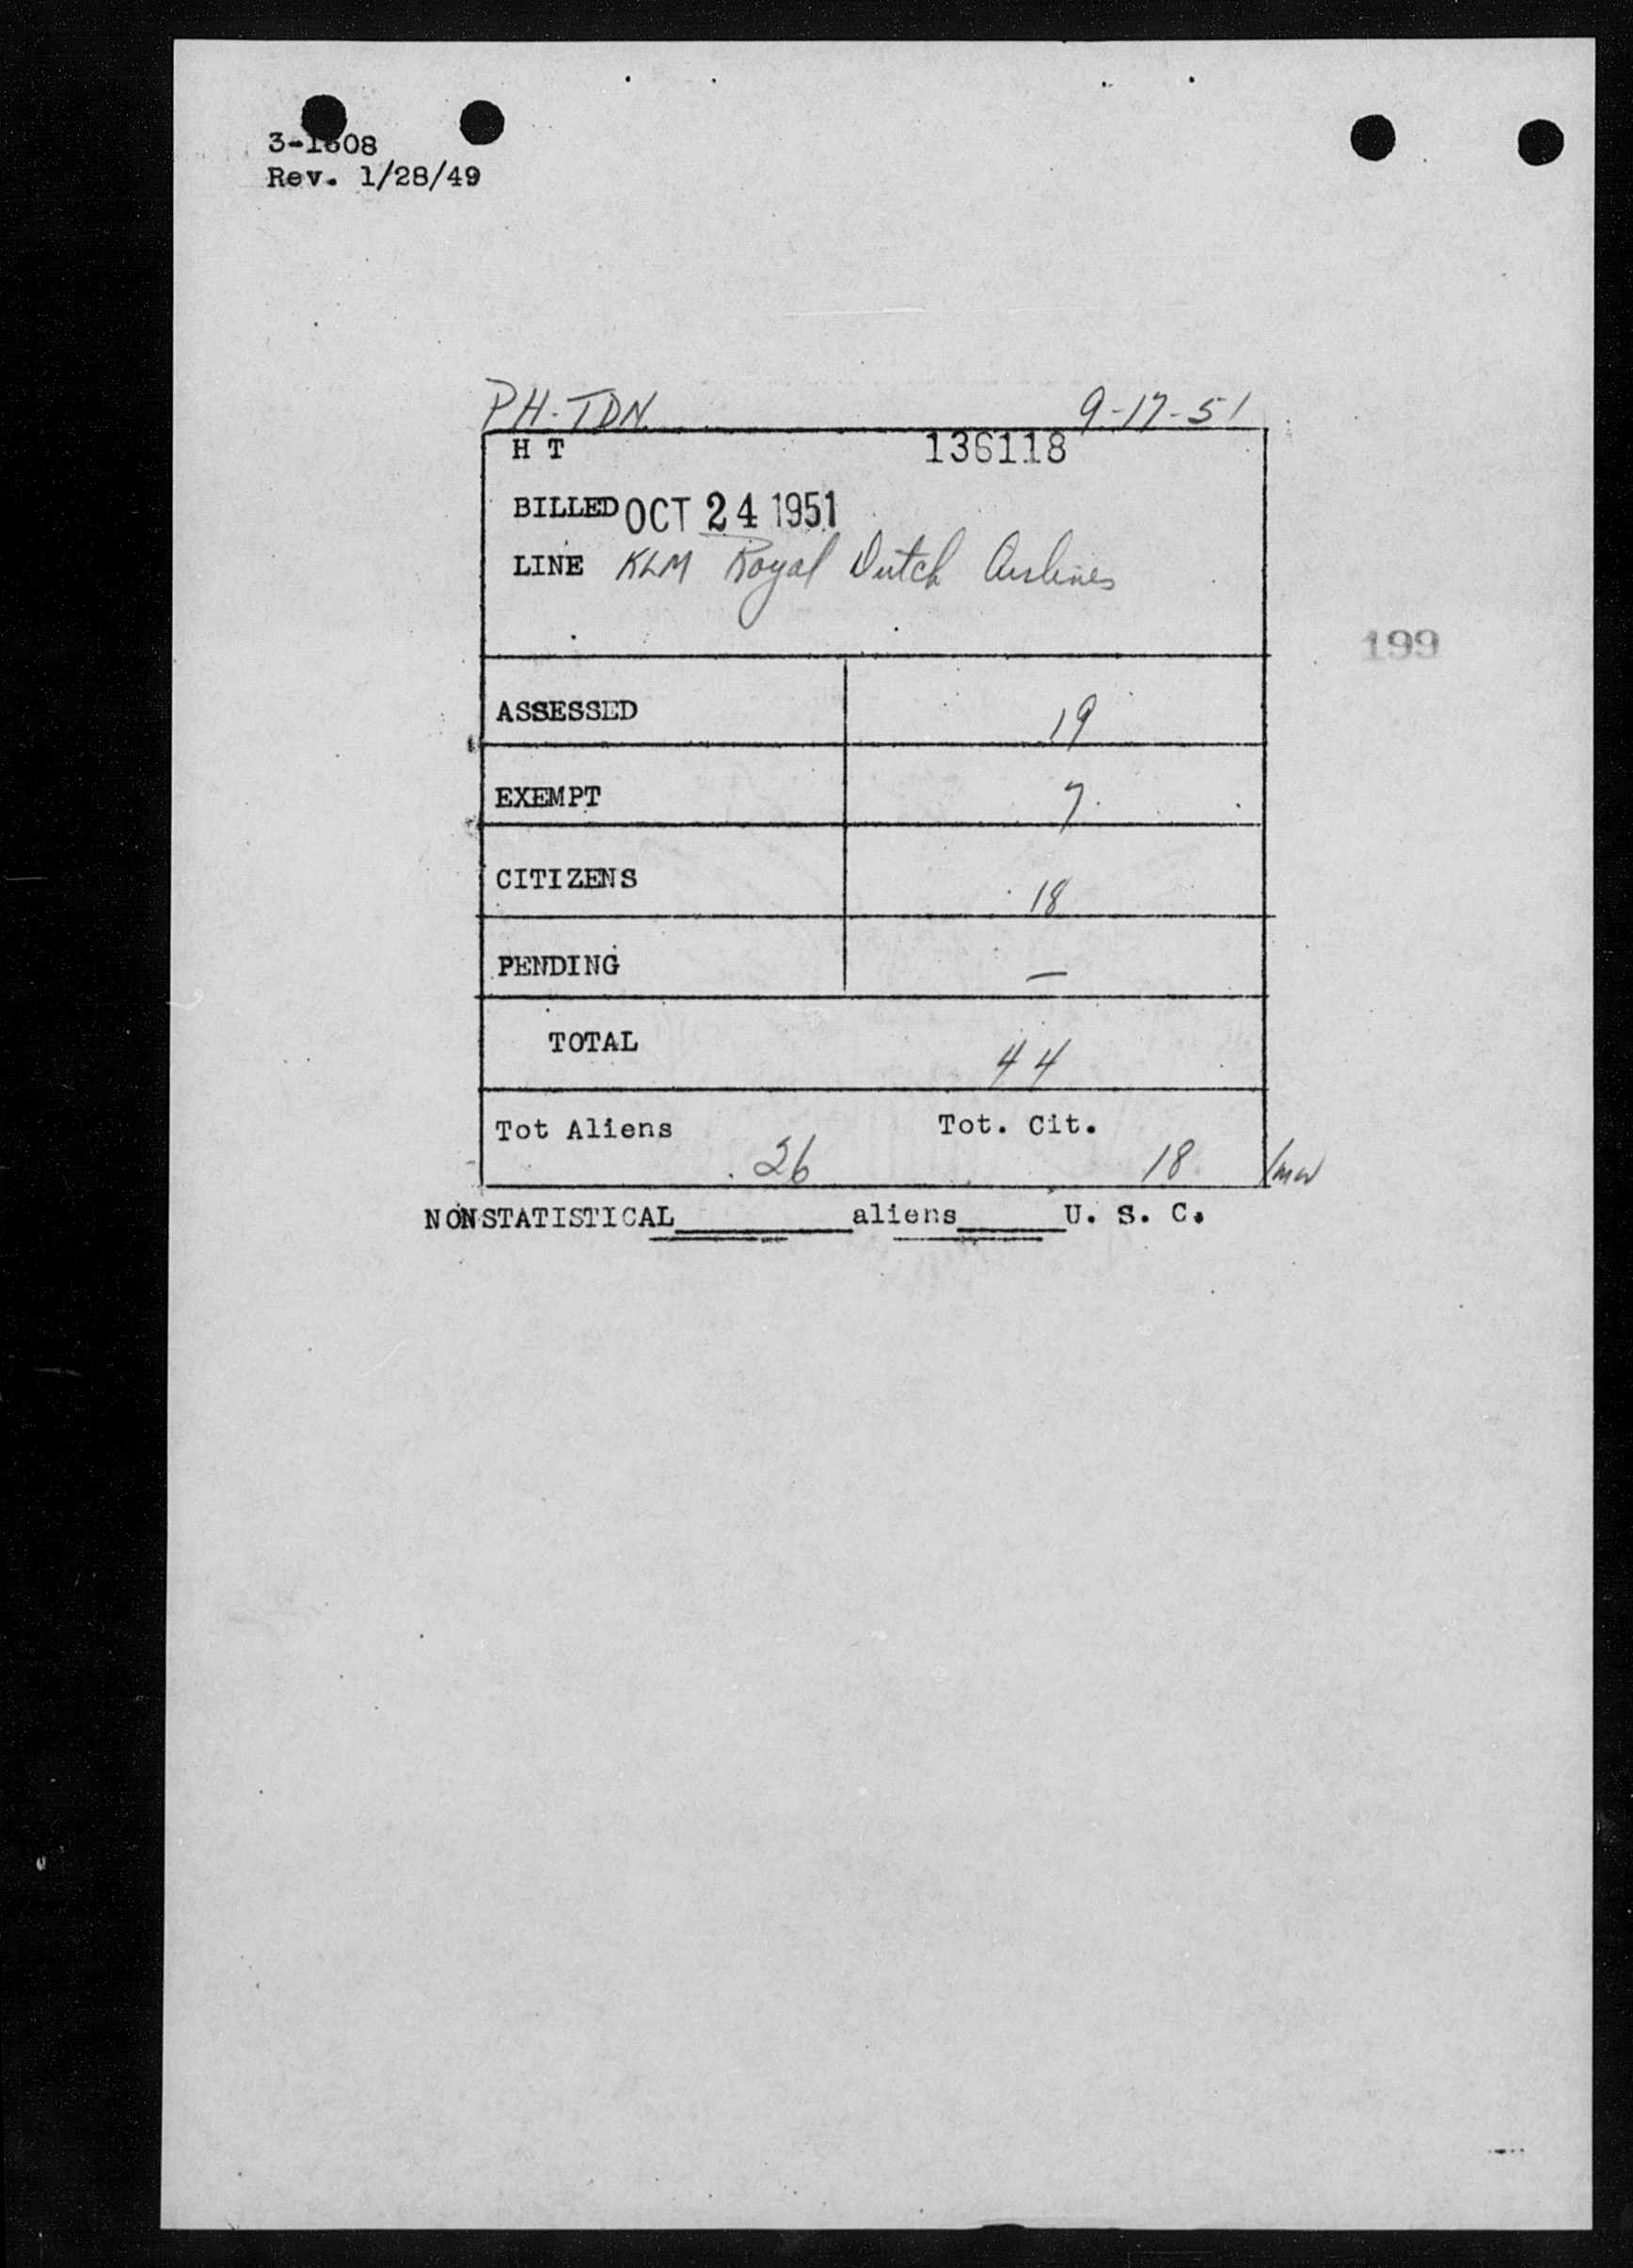 3-1608
Rev. 1/28/49
PH-TDN 9-17-51
H T 136118
BILLED OCT 24 1951
LINE KLM Royal Dutch Airlines
199
ASSESSED 19
EXEMPT 7
CITIZENS 18
PENDING —
TOTAL 44
Tot Aliens Tot. Cit.
26 18 /mw
NONSTATISTICAL________aliens_____U. S. C.